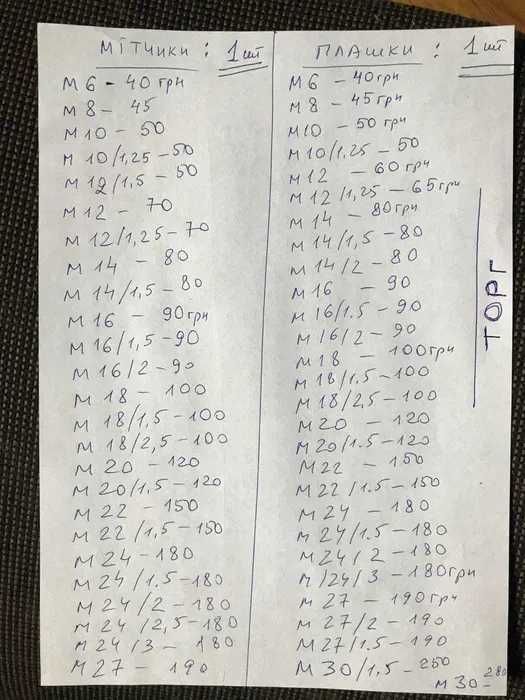 МІТЧИКИ : 1 шт
М 6 - 40 грн
М 8 - 45
М 10 - 50
М 10/1,25 - 50
М 12/1,5 - 50
М 12 - 70
М 12/1,25 - 70
М 14 - 80
М 14/1,5 - 80
М 16 - 90 грн
М 16/1,5 - 90
М 16/2 - 90
М 18 - 100
М 18/1,5 - 100
М 18/2,5 - 100
М 20 - 120
М 20/1,5 - 120
М 22 - 150
М 22/1,5 - 150
М 24 - 180
М 24/1.5 - 180
М 24/2 - 180
М 24/2,5 - 180
М 24/3 - 180
М 27 - 190
ПЛАШКИ : 1 шт
М 6 - 40 грн
М 8 - 45 грн
М 10 - 50 грн
М 10/1.25 - 50
М 12 - 60 грн
М 12/1,25 - 65 грн
М 14 - 80 грн
М 14/1,5 - 80
М 14/2 - 80
М 16 - 90
М 16/1.5 - 90
М 16/2 - 90
М 18 - 100 грн
М 18/1.5 - 100
М 18/2,5 - 100
М 20 - 120
М 20/1.5 - 120
М 22 - 150
М 22/1.5 - 150
М 24 - 180
М 24/1.5 - 180
М 24/2 - 180
М/24/3 - 180 грн
М 27 - 190 грн
М 27/2 - 190
М 27/1.5 - 190
М 30/1,5 - 250
М 30 - 280
ТОРГ